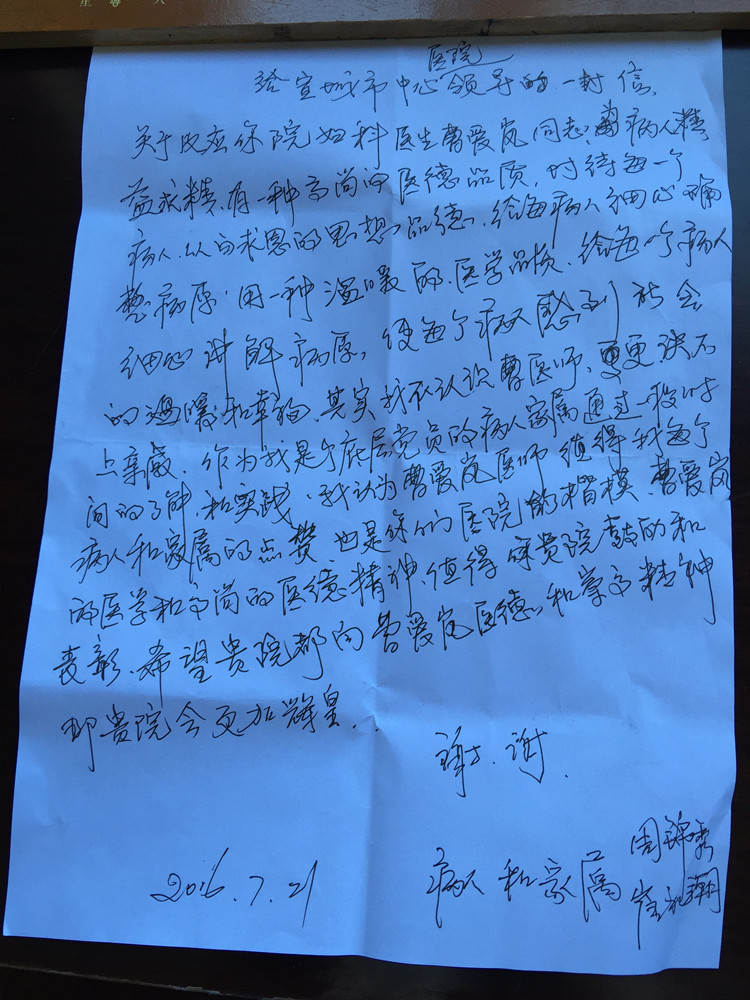 医院
给宣城市中心领导的一封信.
关于反应你院妇科医生曹爱岚同志,对病人精
益求精,有一种高尚的医德品质,对待每一个
病人,以白求恩的思想品德,给每病人细心
病原,用一种温暖的,医学品质,给每个病人
细心讲解病原,使每个病人感到社会
的温暖和幸福,其实我不认识曹医师,更谈不
上亲戚,作为我是个底层党员的病人家属通过一段时
间的了解,和实践,我认为曹爱岚医师值得我每个
病人和家属的点赞,也是你的医院的楷模,曹爱岚
的医学和高尚的医德精神,值得你贵院鼓励和
表彰,希望贵院都向曹爱岚医德,和崇高精神
那贵院会更加辉皇..
谢.谢.
2016.7.21
病人和家属
周锦秀